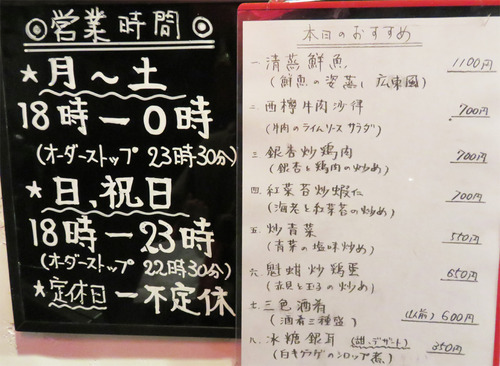 ◎営業時間◎
★月〜土
18時ー0時
(オーダーストップ 23時30分)
★日、祝日
18時ー23時
(オーダーストップ 22時30分)
★定休日ー不定休
本日のおすすめ
一 清蒸鮮魚 1100円
(鮮魚の姿蒸し 広東風)
二 西檸牛肉沙律 700円
(牛肉のライムソースサラダ)
三 銀杏炒鶏肉 700円
(銀杏と鶏肉の炒め)
四 紅菜苔炒蝦仁 700円
(海老と紅菜苔の炒め)
五 炒青菜 550円
(青菜の塩味炒め)
六 魁蚶炒鶏蛋 650円
(赤貝と玉子の炒め)
七 三色酒肴 (小前) 600円
(酒肴三種盛)
八 冰糖銀耳 (甜、デザート) 350円
(白キクラゲのシロップ煮)